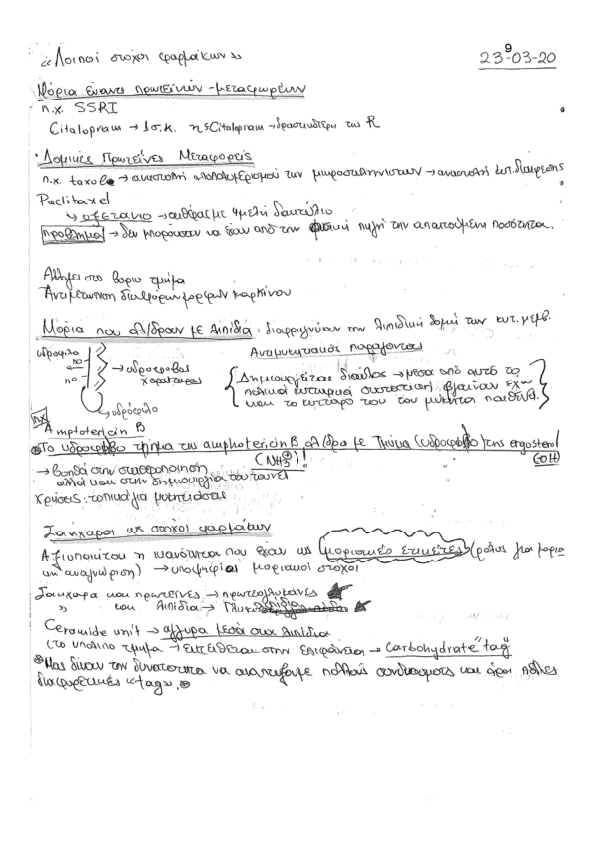 «Λοιποί στόχοι φαρμάκων»
23-03-20
9
Μόρια έναντι πρωτεϊνών-μεταφορέων
π.χ. SSRI
Citalopram → 1σ.κ. η S Citalopram → δραστικότερη της R
• Δομικές Πρωτεΐνες Μεταφορείς
π.χ. taxol → αναστολή αποπολυμερισμού των μικροσωληνίσκων → αναστολή κυτ. διαίρεσης
Paclitaxel
↳ οξετάνιο → αιθέρας με 4μελή δακτύλιο
πρόβλημα → δεν μπορούσαν να έχουν από την φυσική πηγή την απαιτούμενη ποσότητα.
Αλλαγές στο βόρειο τμήμα
Αντιμετώπιση διαφόρων μορφών καρκίνου
Μόρια που αλ/δρουν με Λιπίδια: διαρρηγνύουν την λιπιδική δομή των κυτ. μεμβ.
Αντιμυκητιασικοί παράγοντες
υδρόφιλο
HO
→ υδρόφοβος
χαρακτήρας
HO
↳ υδρόφιλο
{ Δημιουργείται δίαυλος → μέσα από αυτό τα
πολικά κυτταρικά συστατικά βγαίνουν έξω
και το κύτταρο του μύκητα πεθαίνει. }
πχ
Amptotericin B
• Το υδρόφοβο τμήμα της amphotericin B αλ/δρα με Τμήμα (υδρόφοβο) της ergosterol
(NH3⊕)!
(OH)
→ βοηθά στην σταθεροποίηση
αλλά και στην δημιουργία του τούνελ
Χρήσεις: τοπικά για μυκητιάσεις
Σάκχαρα ως στόχοι φαρμάκων
Αξιοποιείται η ικανότητα που έχουν ως μοριακές ετικέτες (ρόλος για μοριακή αναγνώριση) → υποψήφιοι μοριακοί στόχοι
Σάκχαρα και πρωτεΐνες → πρωτεογλυκάνες
» και Λιπίδια → Γλυκολιπίδια
Ceramide unit → αγκυρα μέσα στα λιπίδια
(το υπόλοιπο τμήμα → εκτίθεται στην επιφάνεια → carbohydrate "tag"
• Μας δίνουν την δυνατότητα να αναπτύξουμε πολλούς συνδυασμούς και άρα πολλές
διαφορετικές «tag».